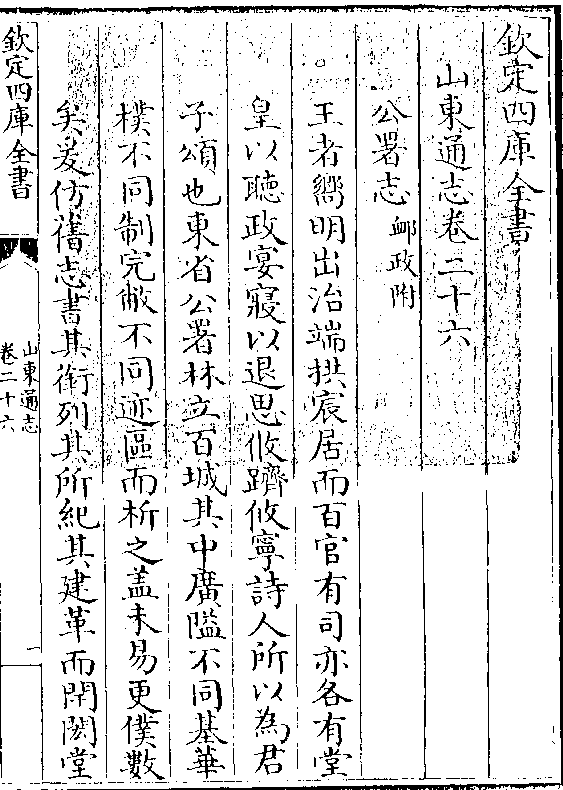 欽定四庫全書
山東通志卷二十六
公署志郵政附
王者嚮明出治端拱宸居而百官有司亦各有堂
皇以聽政宴寢以退思攸躋攸寧詩人所以為君
子頌也東省公署林立百城其中廣隘不同基華
樸不同制完敝不同迹區而析之盖未易更僕數
矣爰仿舊志書其銜列其所紀其建革而閈閎堂
欽定四庫全書
山東通志
卷二十六
一